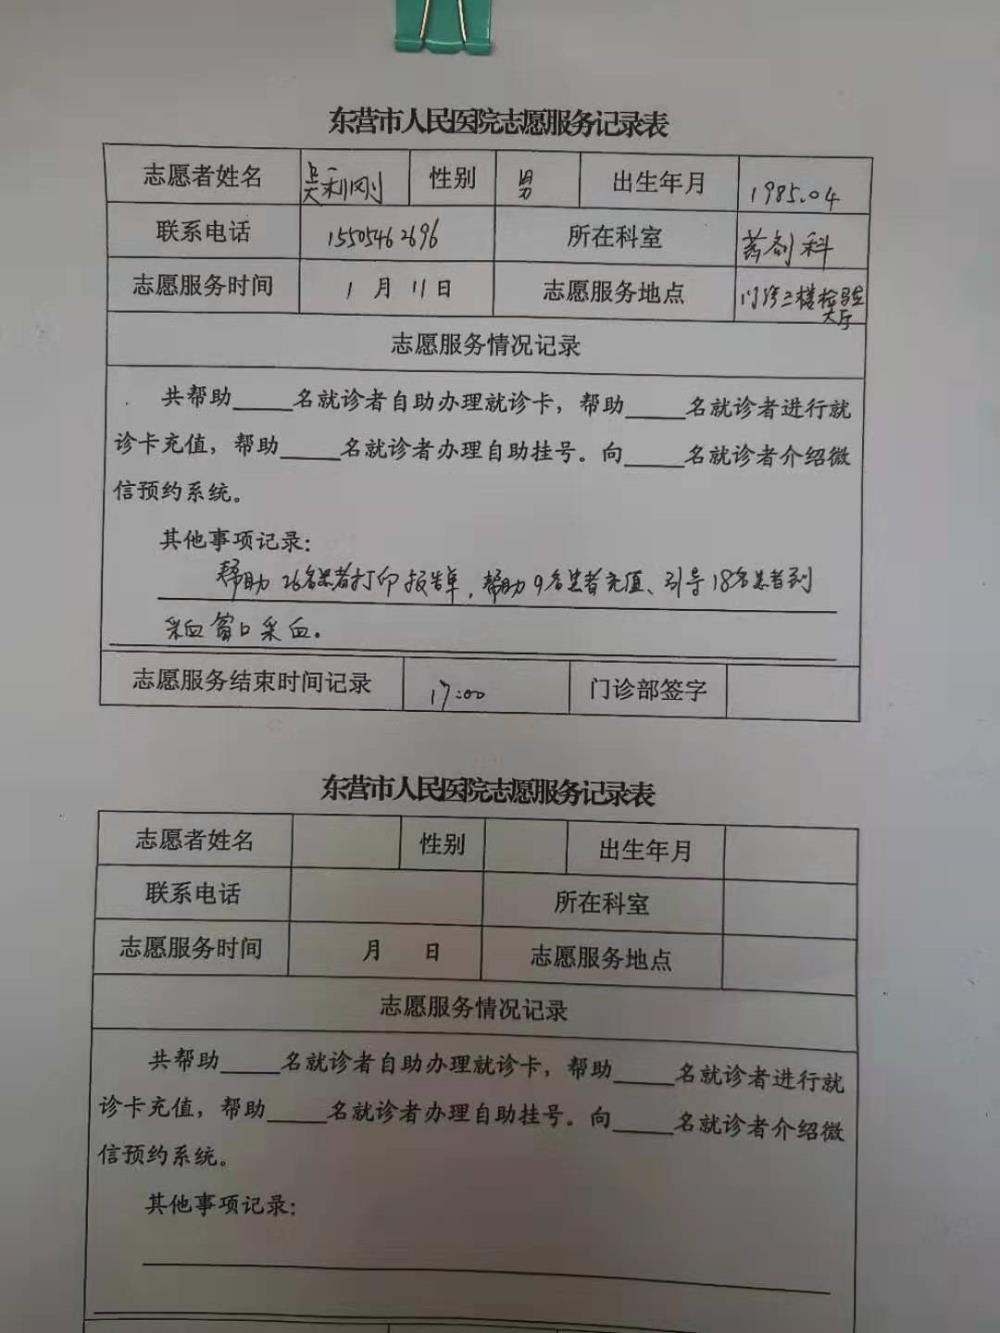 东营市人民医院志愿服务记录表
志愿者姓名 吴利刚 性别 男 出生年月 1985.04
联系电话 15505462696 所在科室 药剂科
志愿服务时间 1月11日 志愿服务地点 门诊三楼检验大厅
志愿服务情况记录
共帮助_____名就诊者自助办理就诊卡，帮助_____名就诊者进行就
诊卡充值，帮助_____名就诊者办理自助挂号。向_____名就诊者介绍微
信预约系统。
其他事项记录：
帮助26名患者打印报告单，帮助9名患者充值、引导18名患者到
采血窗口采血。
志愿服务结束时间记录 17:00 门诊部签字
东营市人民医院志愿服务记录表
志愿者姓名 性别 出生年月
联系电话 所在科室
志愿服务时间 月 日 志愿服务地点
志愿服务情况记录
共帮助_____名就诊者自助办理就诊卡，帮助_____名就诊者进行就
诊卡充值，帮助_____名就诊者办理自助挂号。向_____名就诊者介绍微
信预约系统。
其他事项记录：